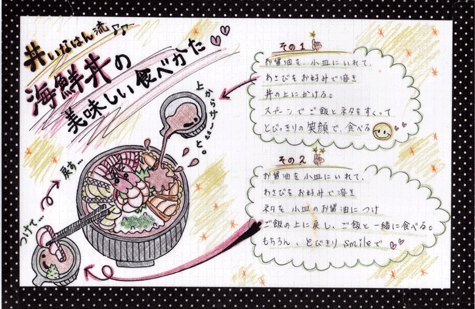 丼いちばん流♪♪
海鮮丼の
美味しい食べかた♡
上からサーッと…
戻す…
つけて…
その1
お醤油を小皿にいれて、
わさびをお好みで溶き
丼の上にかける。
スプーンでご飯とネタをすくって、
とびっきりの笑顔で、食べる
その2
お醤油を小皿にいれて、
わさびをお好みで溶き
ネタを小皿のお醤油につけ
ご飯の上に戻し、ご飯と一緒に食べる。
もちろん、とびきりsmileで